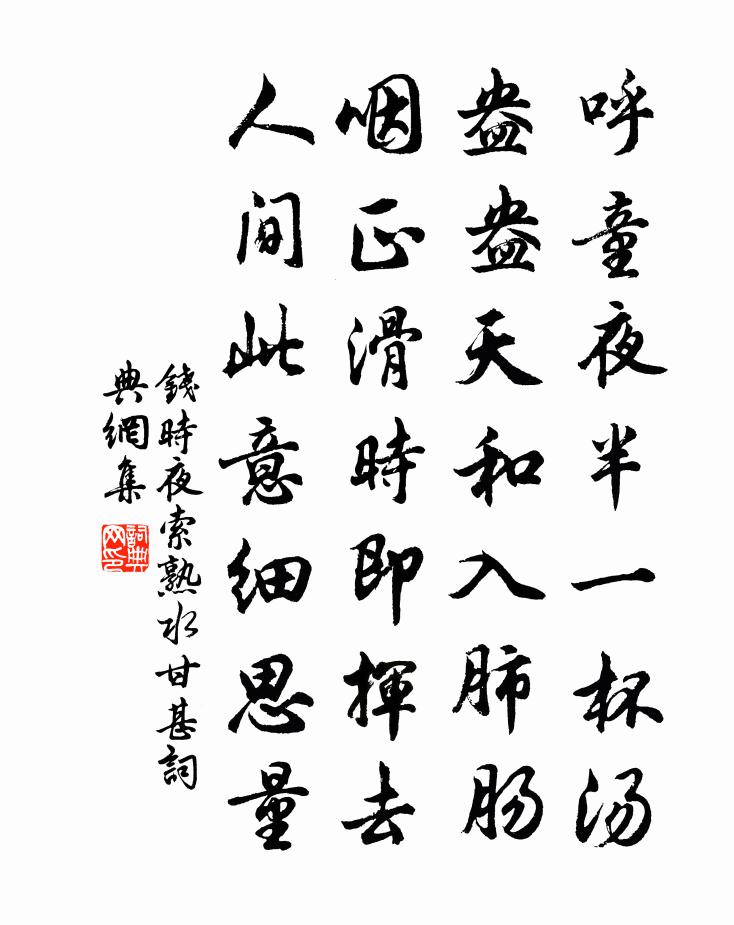 呼童夜半一杯汤
盎盎天和入肺肠
咽正滑時即揮去
人间此意细思量
錢時夜索熟水甘甚詞
典網集
詞典
网印